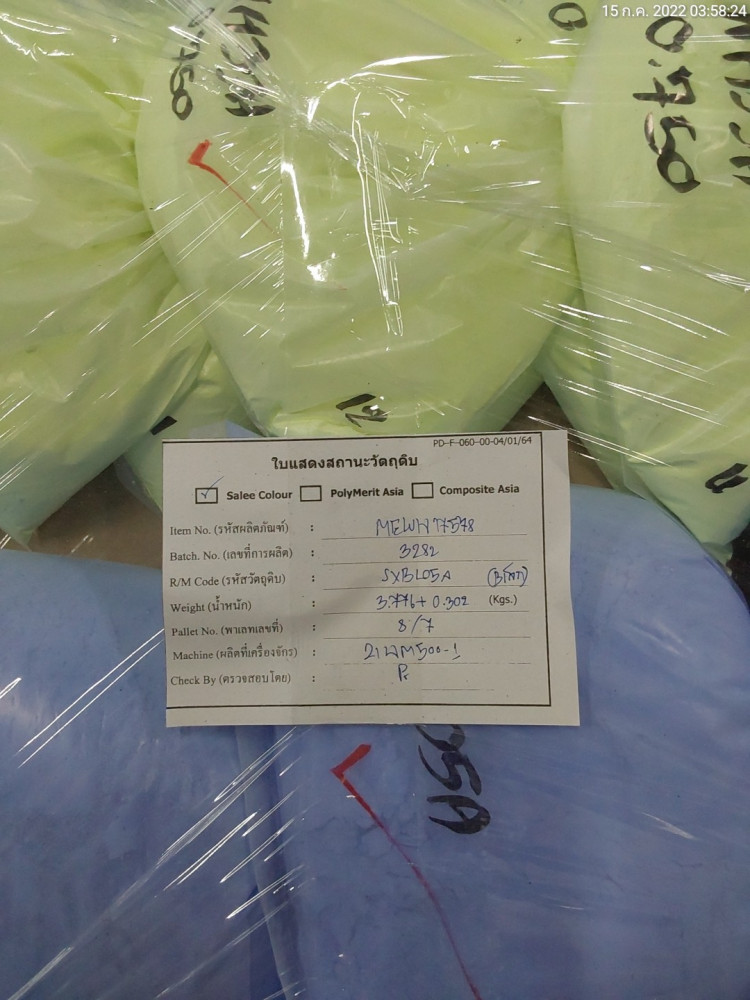 15 ก.ค. 2022 03:58:24
0.750
12
PD-F-060-00-04/01/64
ใบแสดงสถานะวัตถุดิบ
Salee Colour PolyMerit Asia Composite Asia
Item No. (รหัสผลิตภัณฑ์) :
Batch. No. (เลขที่การผลิต) : 3282
R/M Code (รหัสวัตถุดิบ) : SXBL05A
Weight (น้ำหนัก) : 3.776+0.302 (Kgs.)
Pallet No. (พาเลทเลขที่) : 8/7
Machine (ผลิตที่เครื่องจักร) :
Check By (ตรวจสอบโดย) :
05A